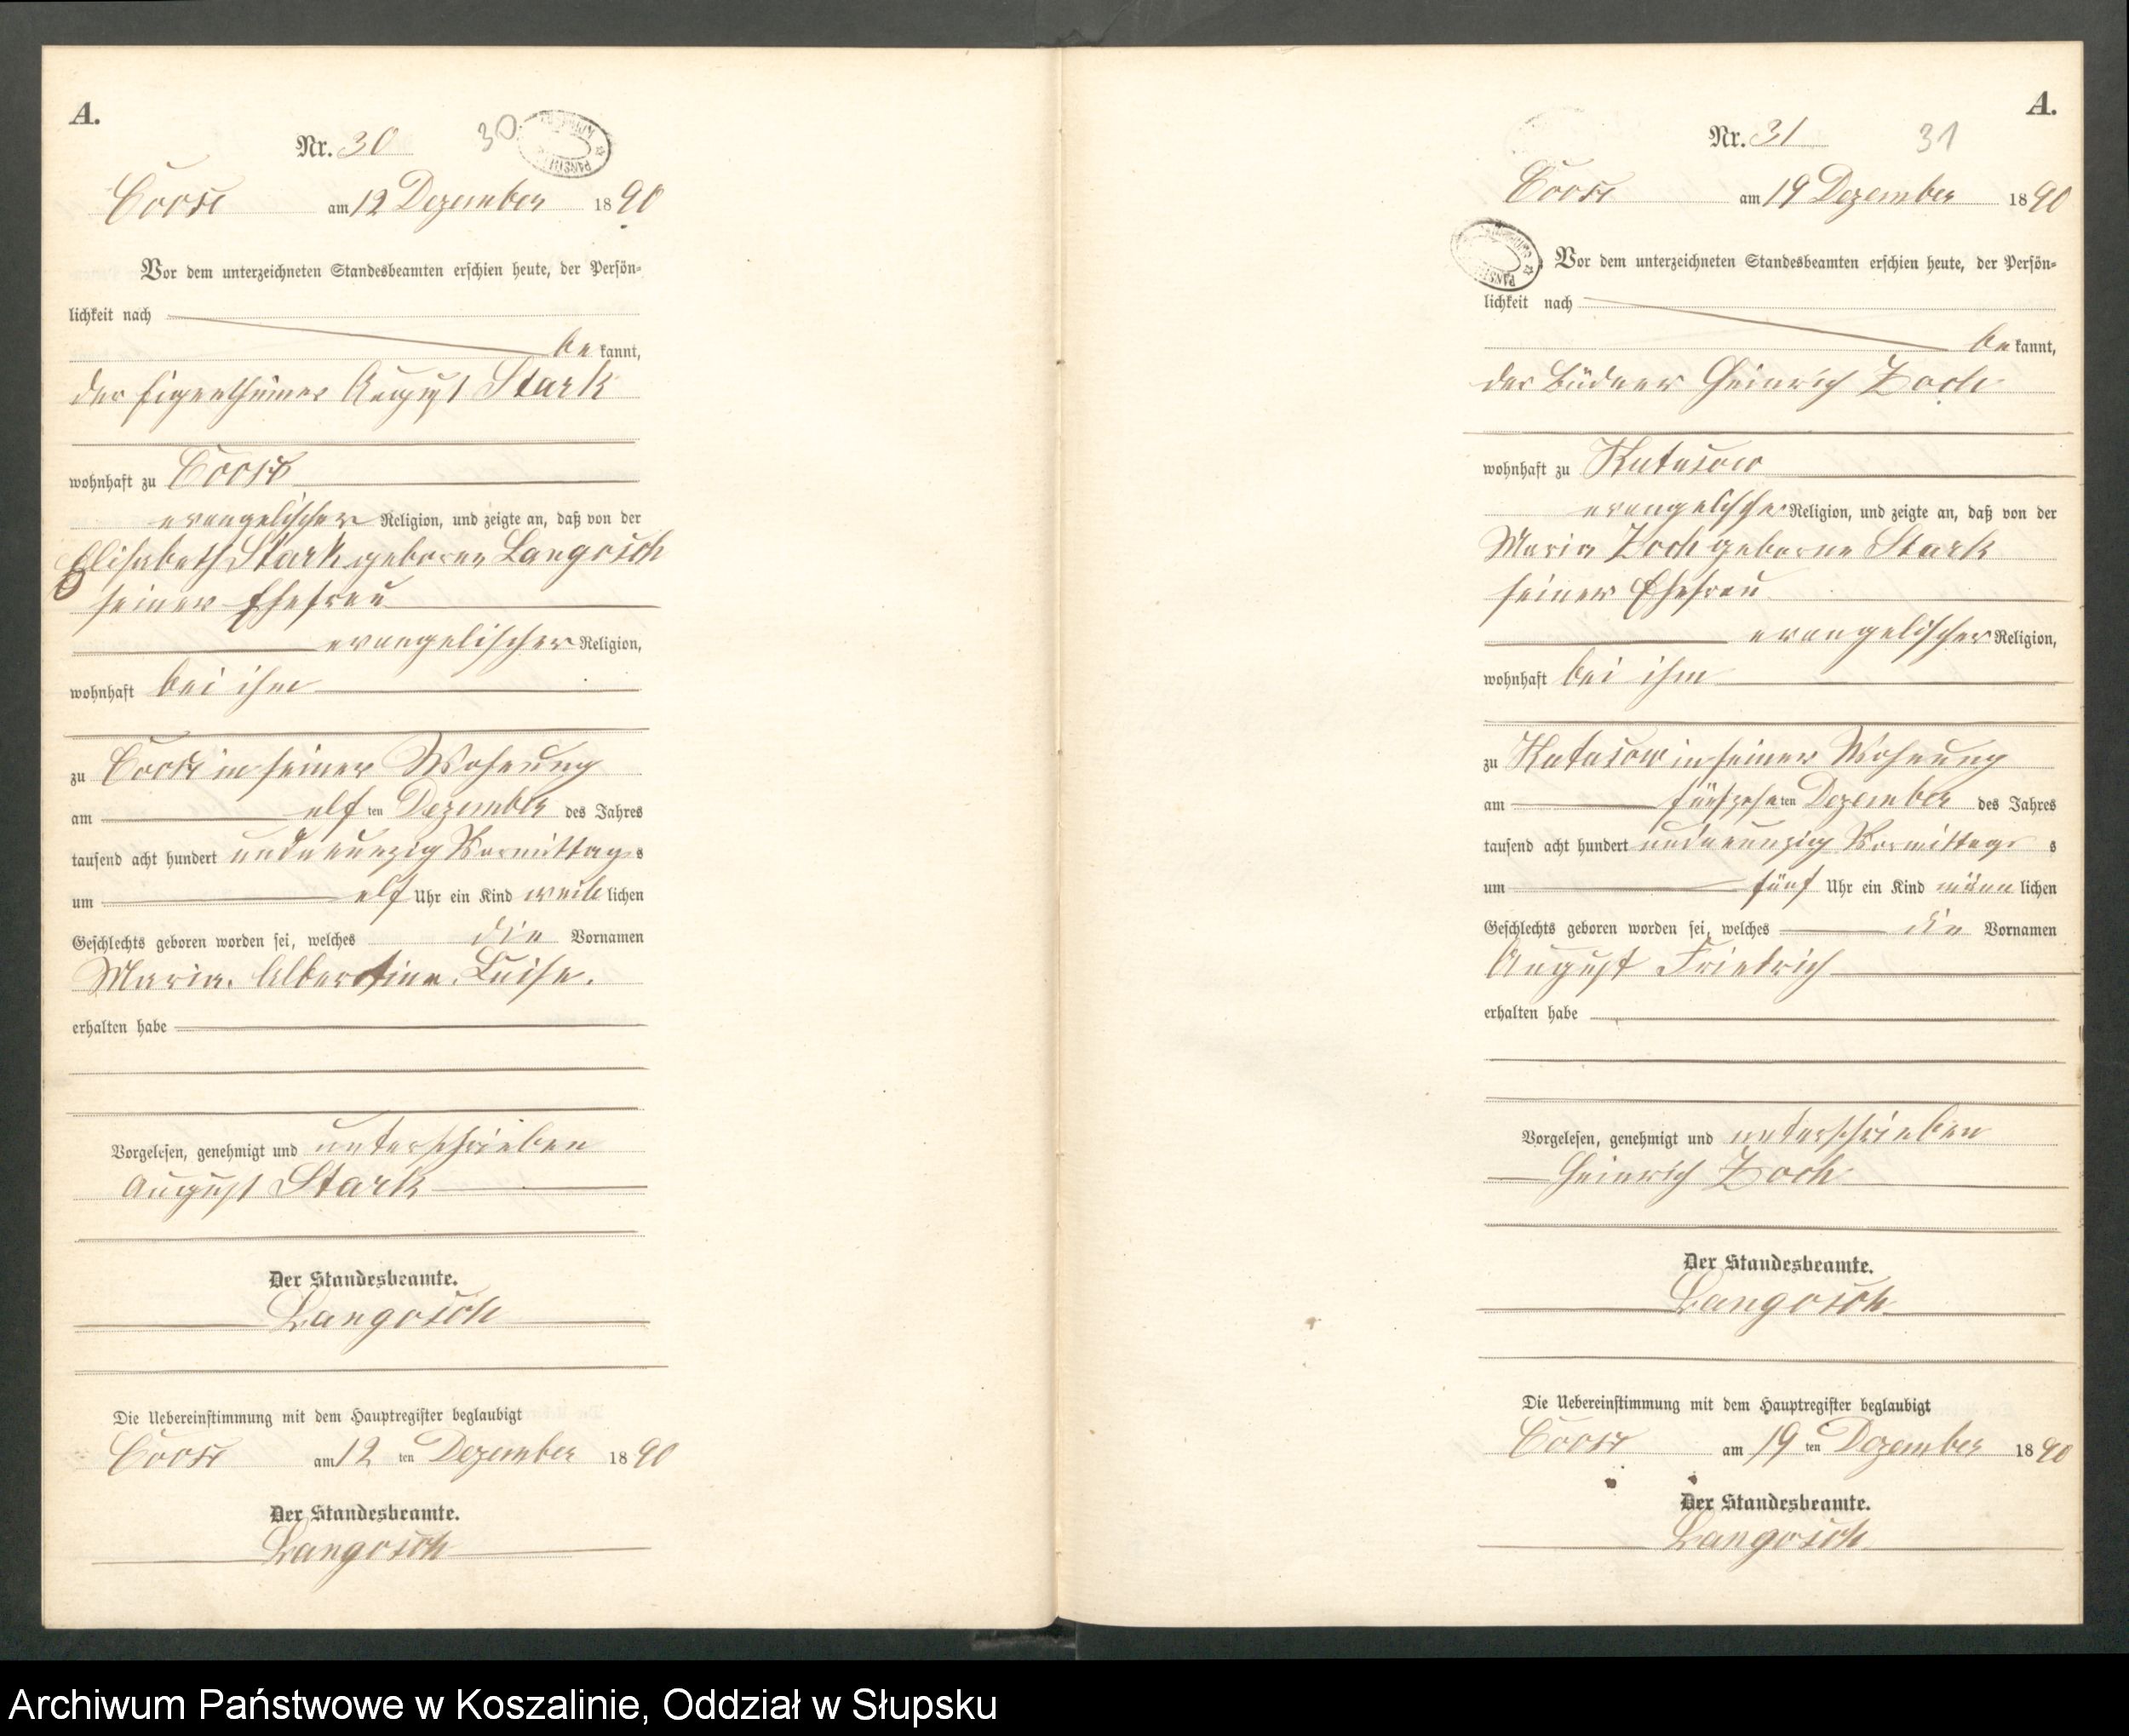 A.
Nr. 30
30
Coose am 12 Dezember 1890
Vor dem unterzeichneten Standesbeamten erschien heute, der Persön-
lichkeit nach
be kannt,
der Eigenthümer August Stark
wohnhaft zu Coose
evangelischer Religion, und zeigte an, daß von der
Elisabeth Stark geborne Langosch
seiner Ehefrau
evangelischer Religion,
wohnhaft bei ihm
zu Coose in seiner Wohnung
am elf ten Dezember des Jahres
tausend acht hundert undneunzig Vormittags
um elf Uhr ein Kind weib lichen
Geschlechts geboren worden sei, welches die Vornamen
Maria. Albertine. Luise.
erhalten habe
Vorgelesen, genehmigt und unterschrieben
August Stark
Der Standesbeamte.
Langosch
Die Uebereinstimmung mit dem Hauptregister beglaubigt
Coose am 12 ten Dezember 1890
Der Standesbeamte.
Langosch
A.
Nr. 31
31
Coose am 19 Dezember 1890
Vor dem unterzeichneten Standesbeamten erschien heute, der Persön-
lichkeit nach
be kannt,
der Büdner Heinrich Zoch
wohnhaft zu Kutusow
evangelischer Religion, und zeigte an, daß von der
Maria Zoch geborne Stark
seiner Ehefrau
evangelischer Religion,
wohnhaft bei ihm
zu Kutusow in seiner Wohnung
am fünfzehn ten Dezember des Jahres
tausend acht hundert undneunzig Vormittags
um fünf Uhr ein Kind männ lichen
Geschlechts geboren worden sei, welches die Vornamen
August Friedrich
erhalten habe
Vorgelesen, genehmigt und unterschrieben
Heinrich Zoch
Der Standesbeamte.
Langosch
Die Uebereinstimmung mit dem Hauptregister beglaubigt
Coose am 19 ten Dezember 1890
Der Standesbeamte.
Langosch
Archiwum Państwowe w Koszalinie, Oddział w Słupsku